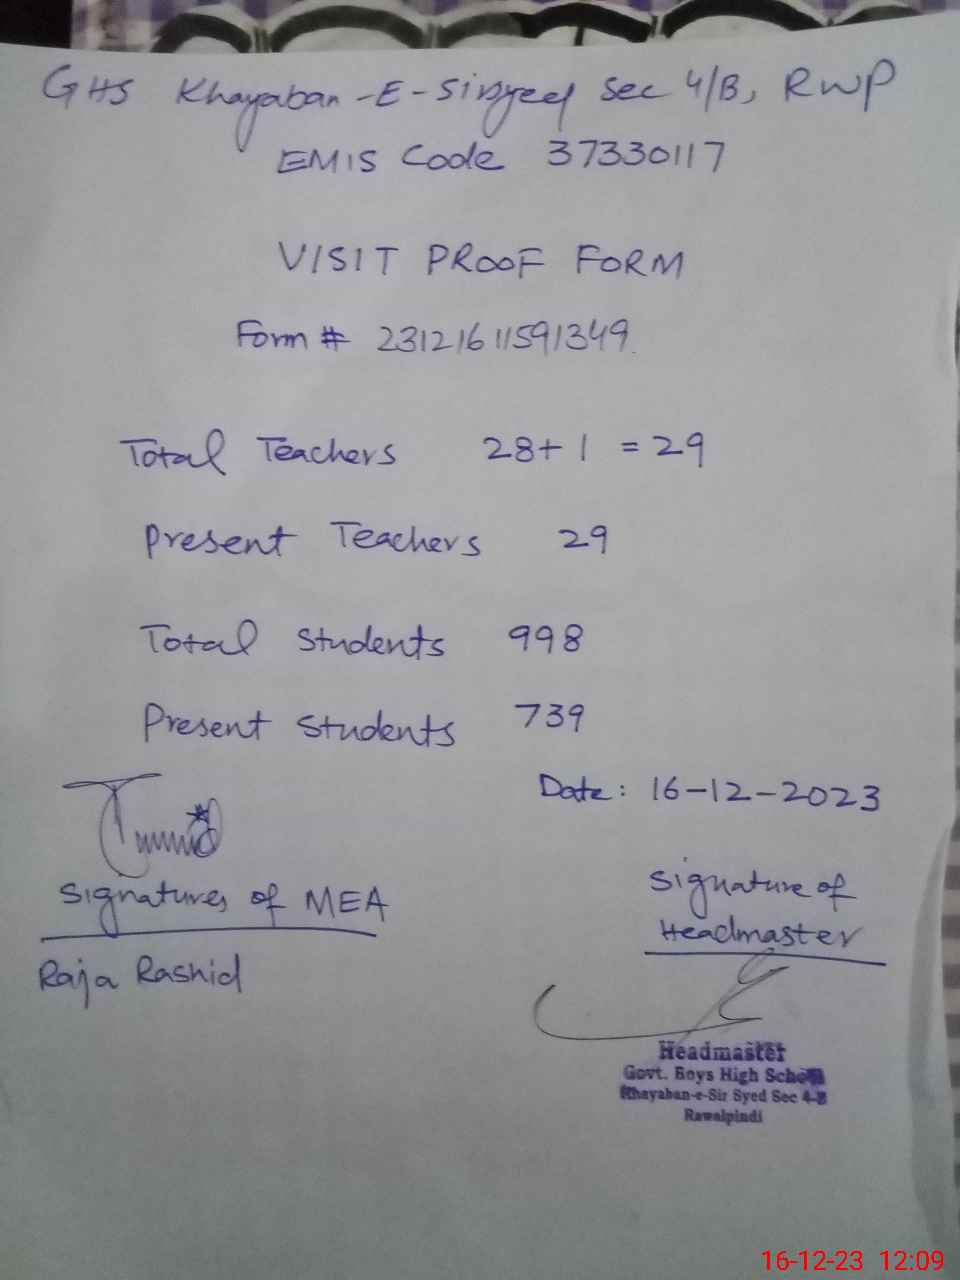 GHS Khayaban-E-Sirsyed Sec 4/B, RWP
EMIS Code 37330117
VISIT PROOF FORM
Form # 23121611591349
Total Teachers 28+1 = 29
Present Teachers 29
Total Students 998
Present Students 739
Date: 16-12-2023
Signatures of MEA
Raja Rashid
Signature of
Headmaster
Headmaster
Govt. Boys High School
Khayaban-e-Sir Syed Sec 4-B
Rawalpindi
16-12-23 12:09